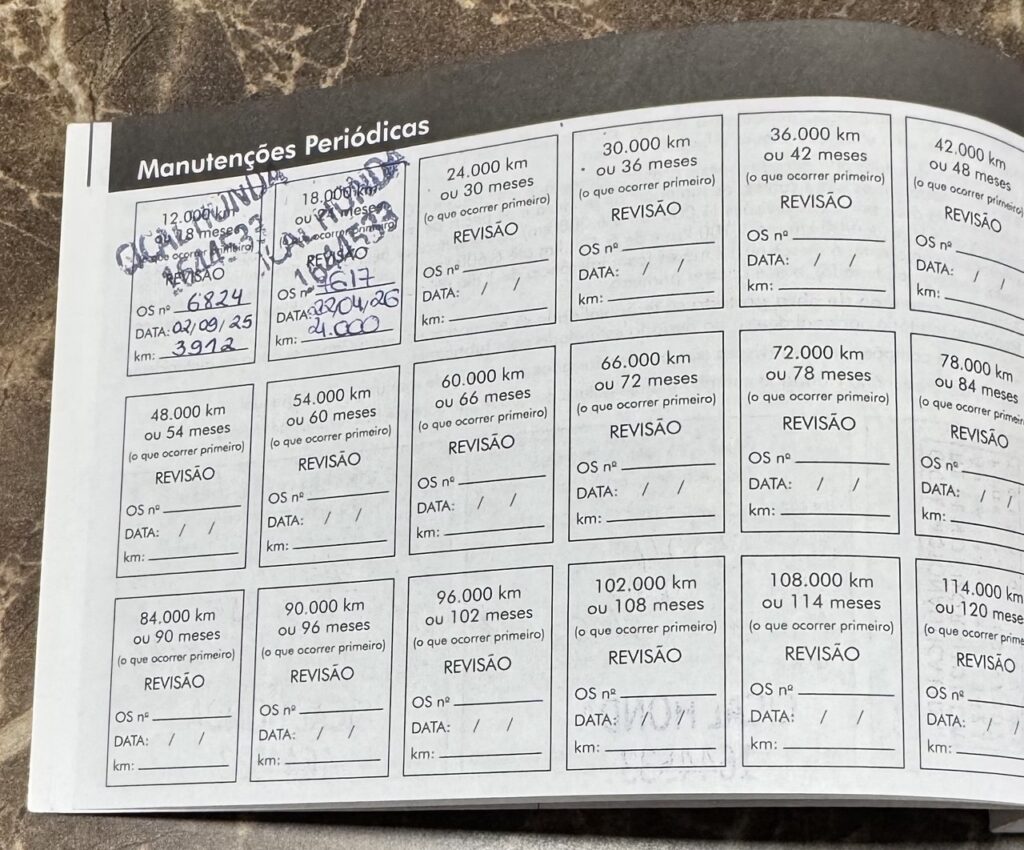 Manutenções Periódicas
12.000 km
ou 18 meses
(o que ocorrer primeiro)
REVISÃO
OS nº 6824
DATA: 02/09/25
km: 3912
18.000 km
ou 24 meses
(o que ocorrer primeiro)
REVISÃO
OS nº 7617
DATA: 22/04/26
km: 4.000
HONDA
1644533
24.000 km
ou 30 meses
(o que ocorrer primeiro)
REVISÃO
OS nº
DATA: / /
km:
30.000 km
ou 36 meses
(o que ocorrer primeiro)
REVISÃO
OS nº
DATA: / /
km:
36.000 km
ou 42 meses
(o que ocorrer primeiro)
REVISÃO
OS nº
DATA: / /
km:
42.000 km
ou 48 meses
(o que ocorrer primeiro)
REVISÃO
OS nº
DATA: / /
km:
48.000 km
ou 54 meses
(o que ocorrer primeiro)
REVISÃO
OS nº
DATA: / /
km:
54.000 km
ou 60 meses
(o que ocorrer primeiro)
REVISÃO
OS nº
DATA: / /
km:
60.000 km
ou 66 meses
(o que ocorrer primeiro)
REVISÃO
OS nº
DATA: / /
km:
66.000 km
ou 72 meses
(o que ocorrer primeiro)
REVISÃO
OS nº
DATA: / /
km:
72.000 km
ou 78 meses
(o que ocorrer primeiro)
REVISÃO
OS nº
DATA: / /
km:
78.000 km
ou 84 meses
(o que ocorrer primeir
REVISÃO
OS nº
DATA: / /
km:
84.000 km
ou 90 meses
(o que ocorrer primeiro)
REVISÃO
OS nº
DATA: / /
km:
90.000 km
ou 96 meses
(o que ocorrer primeiro)
REVISÃO
OS nº
DATA: / /
km:
96.000 km
ou 102 meses
(o que ocorrer primeiro)
REVISÃO
OS nº
DATA: / /
km:
102.000 km
ou 108 meses
(o que ocorrer primeiro)
REVISÃO
OS nº
DATA: / /
km:
108.000 km
ou 114 meses
(o que ocorrer primeiro)
REVISÃO
OS nº
DATA: / /
km:
114.000 km
ou 120 mese
(o que ocorrer prime
REVISÃO
OS nº
DATA: / /
km: